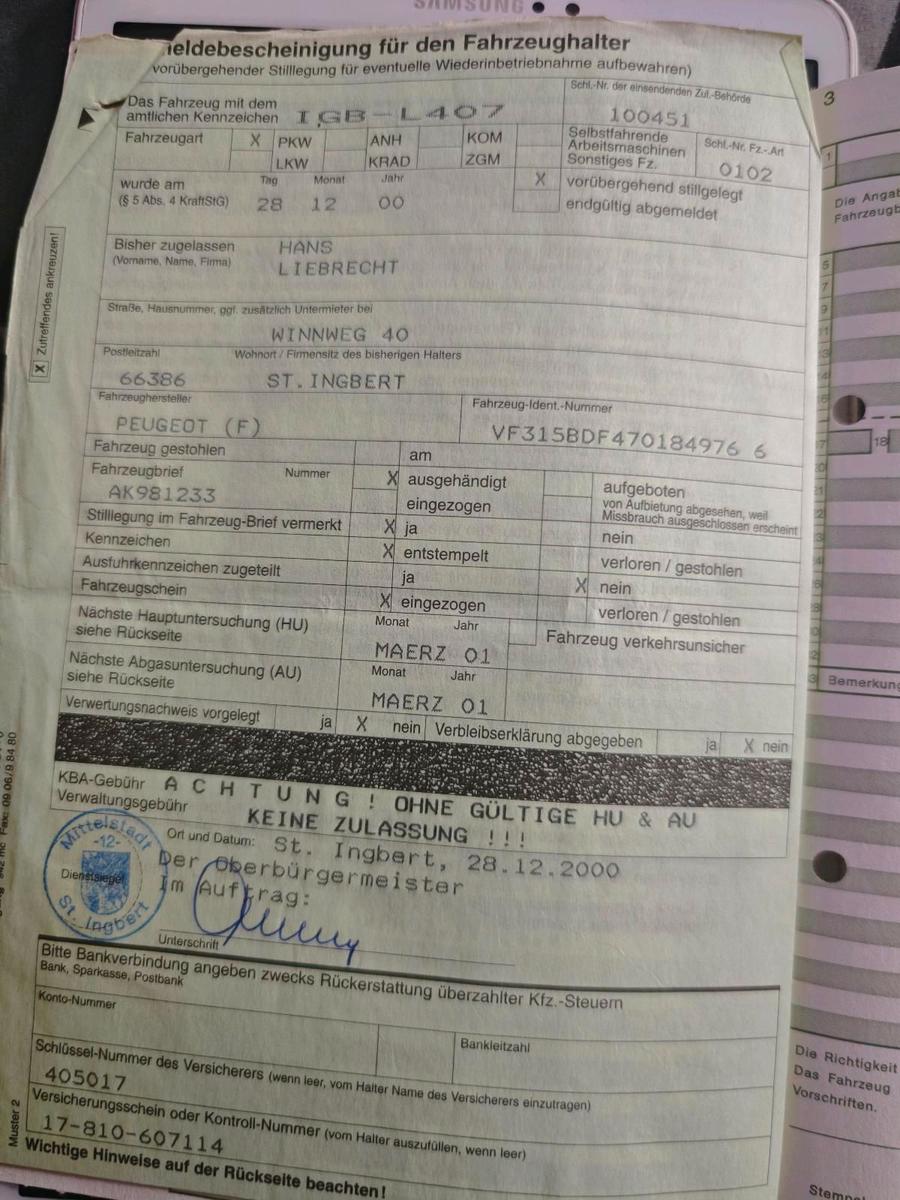 SAMSUNG
eldebescheinigung für den Fahrzeughalter
vorübergehender Stilllegung für eventuelle Wiederinbetriebnahme aufbewahren)
Das Fahrzeug mit dem
amtlichen Kennzeichen IGB-L407
Schl.-Nr. der einsendenden Zul.-Behörde
100451
Fahrzeugart X PKW ANH KOM Selbstfahrende Schl.-Nr. Fz.-Art
LKW KRAD ZGM Arbeitsmaschinen
Sonstiges Fz. 0102
Tag Monat Jahr X vorübergehend stillgelegt
wurde am
(§ 5 Abs. 4 KraftStG) 28 12 00 endgültig abgemeldet
X Zutreffendes ankreuzen!
Bisher zugelassen HANS
(Vorname, Name, Firma) LIEBRECHT
Straße, Hausnummer, ggf. zusätzlich Untermieter bei
WINNWEG 40
Postleitzahl Wohnort / Firmensitz des bisherigen Halters
66386 ST.INGBERT
Fahrzeughersteller Fahrzeug-Ident.-Nummer
PEUGEOT (F) VF315BDF470184976 6
Fahrzeug gestohlen am
Fahrzeugbrief Nummer X ausgehändigt aufgeboten
AK981233 eingezogen von Aufbietung abgesehen, weil
Missbrauch ausgeschlossen erscheint
Stilllegung im Fahrzeug-Brief vermerkt X ja nein
Kennzeichen X entstempelt verloren / gestohlen
Ausfuhrkennzeichen zugeteilt ja X nein
Fahrzeugschein X eingezogen verloren / gestohlen
Nächste Hauptuntersuchung (HU) Monat Jahr Fahrzeug verkehrsunsicher
siehe Rückseite MAERZ 01
Nächste Abgasuntersuchung (AU) Monat Jahr
siehe Rückseite MAERZ 01
Verwertungsnachweis vorgelegt ja X nein Verbleibserklärung abgegeben ja X nein
KBA-Gebühr ACHTUNG! OHNE GÜLTIGE HU & AU
Verwaltungsgebühr KEINE ZULASSUNG !!!
Ort und Datum: St. Ingbert, 28.12.2000
Der Oberbürgermeister
Im Auftrag:
Mittelstadt
-12-
Dienstsiegel
St. Ingbert
Unterschrift
Bitte Bankverbindung angeben zwecks Rückerstattung überzahlter Kfz.-Steuern
Bank, Sparkasse, Postbank
Konto-Nummer Bankleitzahl
Schlüssel-Nummer des Versicherers (wenn leer, vom Halter Name des Versicherers einzutragen)
405017
Versicherungsschein oder Kontroll-Nummer (vom Halter auszufüllen, wenn leer)
17-810-607114
Wichtige Hinweise auf der Rückseite beachten!
Muster 2
3
1
Die Angab
Fahrzeugb
5
7
9
18
Bemerkung
Die Richtigkeit
Das Fahrzeug
Vorschriften.
Stempe